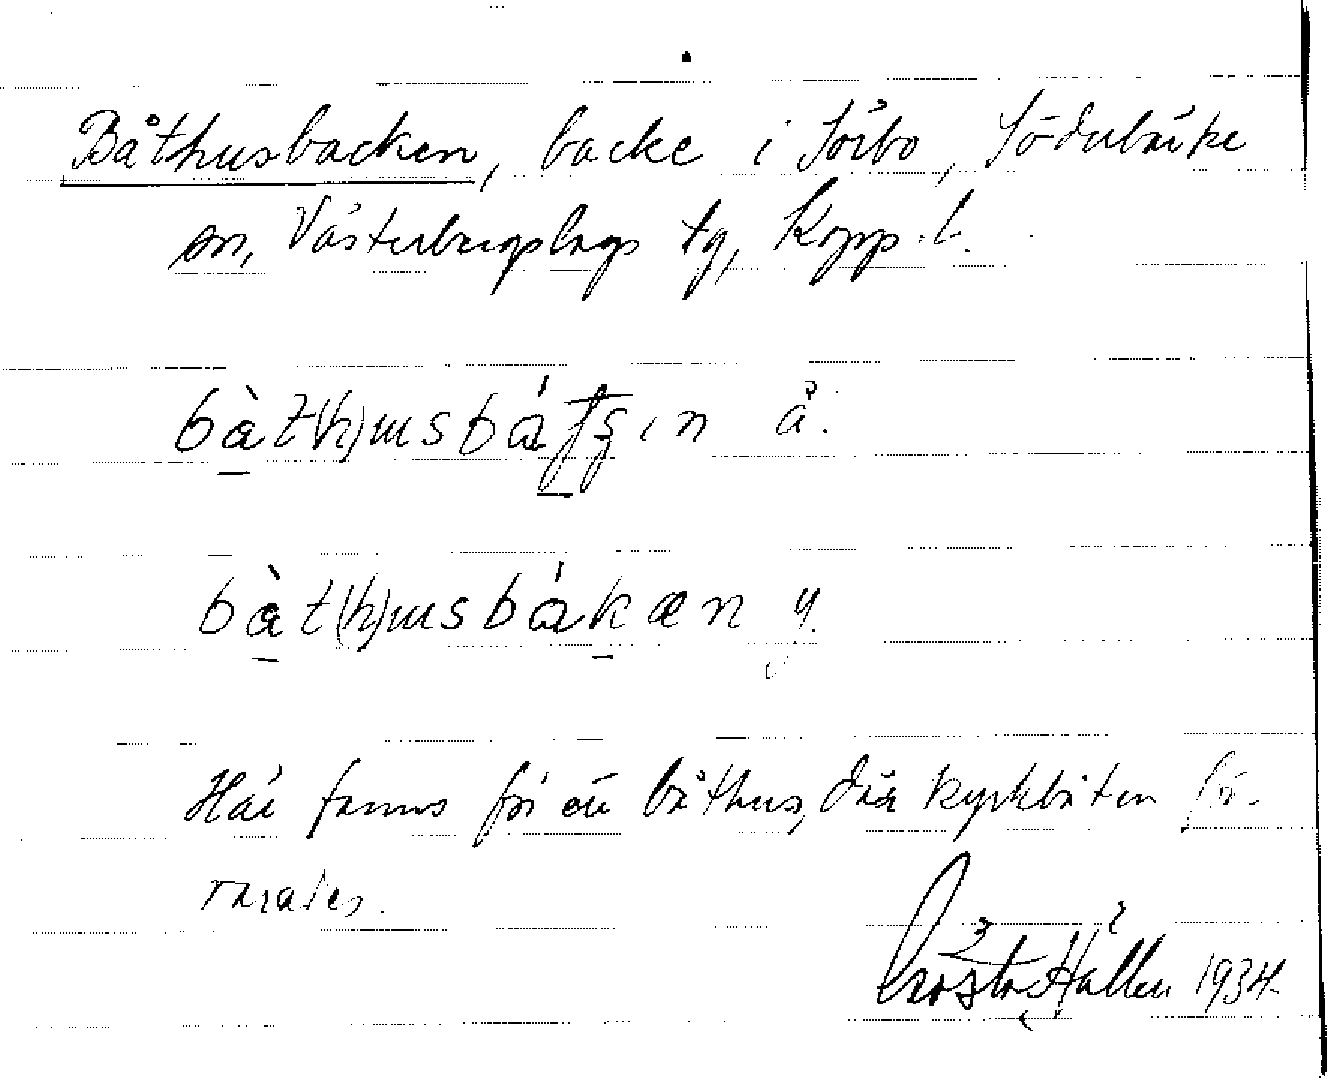 Båthusbacken, backe i Sörbo, Söderbärke
sn, Västerbergslags tg, Kopp. l.
bàt(h)usbáʈʂın ä.
bàt(h)usbákæn y.
Här fanns förr ett båthus, där kyrkbåten för-
varades.
Gösta Hällen 1934